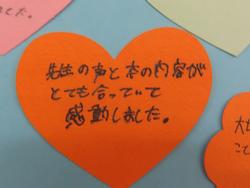 ました。
先生の声と本の内容が
とても合っていて
感動しました。
大
こと